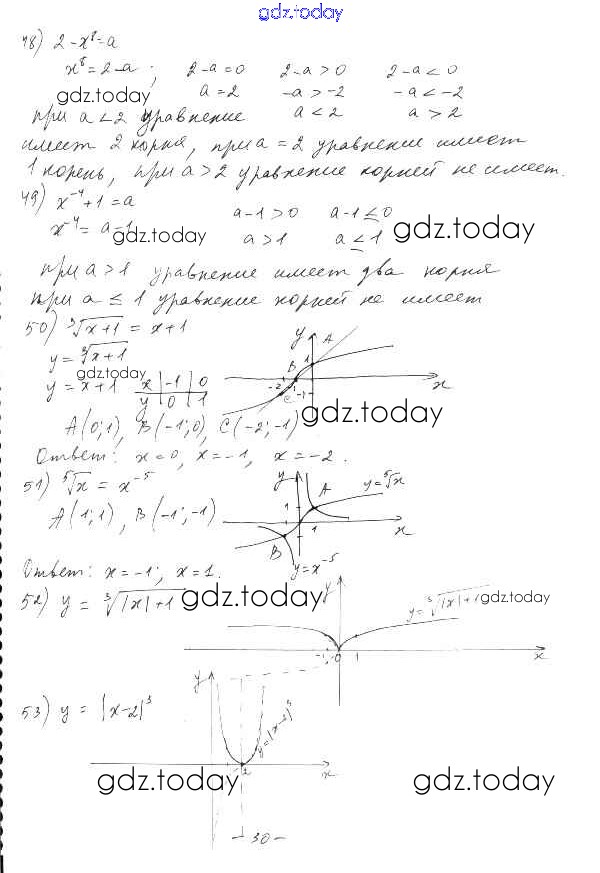 gdz.today
48) 2-x⁸=a
x⁸=2-a; 2-a=0 2-a>0 2-a<0
gdz.today a=2 -a>-2 -a<-2
при a<2 уравнение a<2 a>2
имеет 2 корня, при a=2 уравнение имеет
1 корень, при a>2 уравнение корней не имеет.
49) x⁻⁴+1=a
a-1>0 a-1≤0
x⁻⁴=a-1 gdz.today a>1 a≤1 gdz.today
при a>1 уравнение имеет два корня
при a≤1 уравнение корней не имеет
50) ³√x+1 = x+1
y=³√x+1
gdz.today
y=x+1 x -1 0
y 0 1
y A B 1 -2 -1 C -1 x
gdz.today
A(0;1), B(-1;0), C(-2;-1)
Ответ: x=0, x=-1, x=-2.
51) ⁵√x = x⁻⁵
A(1;1), B(-1;-1)
y A y=⁵√x 1 1 x B y=x⁻⁵
Ответ: x=-1; x=1.
52) y = ³√|x|+1 gdz.today
y y=³√|x|+1 gdz.today
-1 0 1 x
53) y = |x-2|³
y y=|x-2|³ 2 x
gdz.today gdz.today
-30-